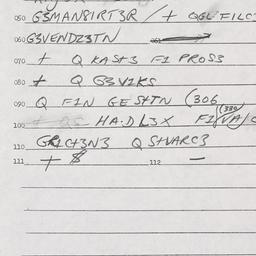 050 G3MANSIRT3R / + QGL FILC
060 G3VENDZ3TN 061
070 + Q KASH3 FI PROS3
080 + Q G3VIKS
090 Q FIN GESHTN (306
(330
100 HA·DL3X FI (VA/C
110 GRICH3N3 Q STVARC3
111 + $ 112 —